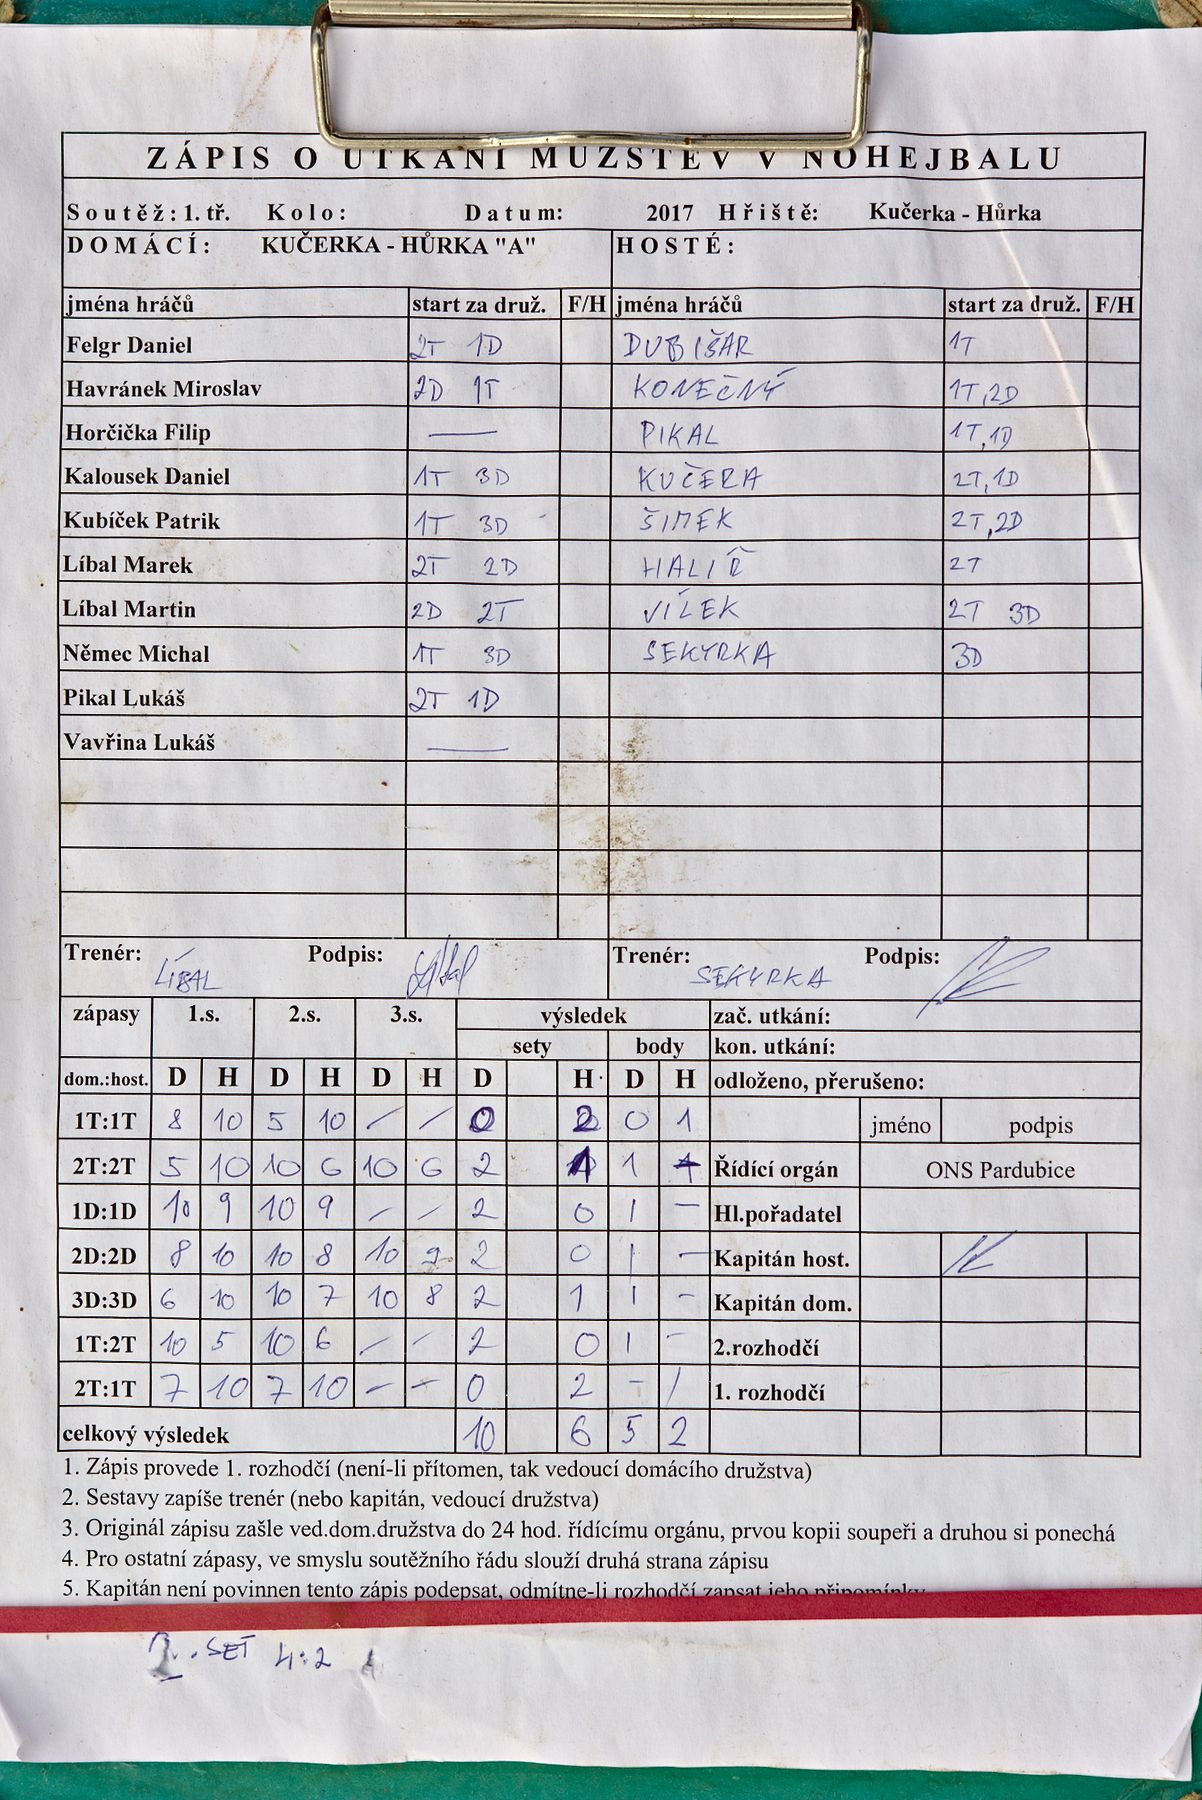 ZÁPIS O UTKÁNÍ MUŽSTEV V NOHEJBALU
Soutěž: 1. tř. Kolo: Datum: 2017 Hřiště: Kučerka - Hůrka
DOMÁCÍ: KUČERKA - HŮRKA "A" HOSTÉ:
jména hráčů start za druž. F/H jména hráčů start za druž. F/H
Felgr Daniel 2T 1D DUBIŠAR 1T
Havránek Miroslav 2D 1T KONEČNÝ 1T,2D
Horčička Filip — PIKAL 1T,1D
Kalousek Daniel 1T 3D KUČERA 2T,1D
Kubíček Patrik 1T 3D ŠIMEK 2T,2D
Líbal Marek 2T 2D HALÍŘ 2T
Líbal Martin 2D 2T VÍLEK 2T 3D
Němec Michal 1T 3D SEKYRKA 3D
Pikal Lukáš 2T 1D
Vavřina Lukáš —
Trenér: LÍBAL Podpis: Líbal Trenér: SEKYRKA Podpis:
zápasy 1.s. 2.s. 3.s. výsledek zač. utkání:
sety body kon. utkání:
dom.:host. D H D H D H D H D H odloženo, přerušeno:
1T:1T 8 10 5 10 – – 0 2 0 1 jméno podpis
2T:2T 5 10 10 6 10 6 2 1 1 Řídící orgán ONS Pardubice
1D:1D 10 9 10 9 – – 2 0 1 – Hl.pořadatel
2D:2D 8 10 10 8 10 9 2 0 1 – Kapitán host.
3D:3D 6 10 10 7 10 8 2 1 1 – Kapitán dom.
1T:2T 10 5 10 6 – – 2 0 1 – 2.rozhodčí
2T:1T 7 10 7 10 – – 0 2 – 1 1. rozhodčí
celkový výsledek 10 6 5 2
1. Zápis provede 1. rozhodčí (není-li přítomen, tak vedoucí domácího družstva)
2. Sestavy zapíše trenér (nebo kapitán, vedoucí družstva)
3. Originál zápisu zašle ved.dom.družstva do 24 hod. řídícímu orgánu, prvou kopii soupeři a druhou si ponechá
4. Pro ostatní zápasy, ve smyslu soutěžního řádu slouží druhá strana zápisu
5. Kapitán není povinnen tento zápis podepsat, odmítne-li rozhodčí zapsat jeho připomínky
SET 4:2